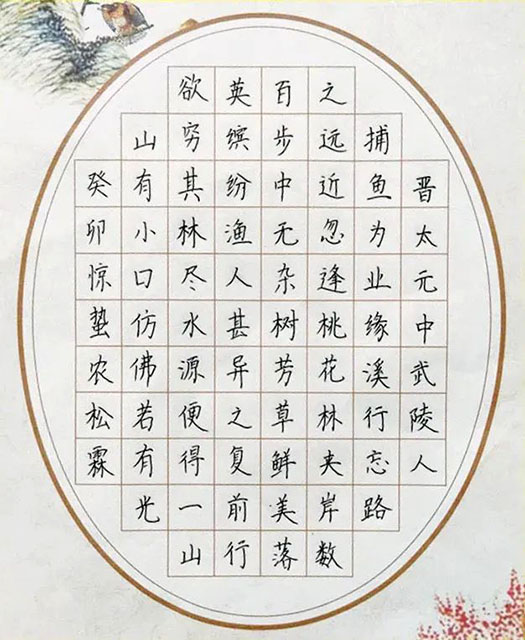 晋太元中武陵人
捕鱼为业缘溪行忘路
之远近忽逢桃花林夹岸数
百步中无杂树芳草鲜美落
英缤纷渔人甚异之复前行
欲穷其林尽水源便得一山
山有小口仿佛若有光
癸卯惊蛰农松霖